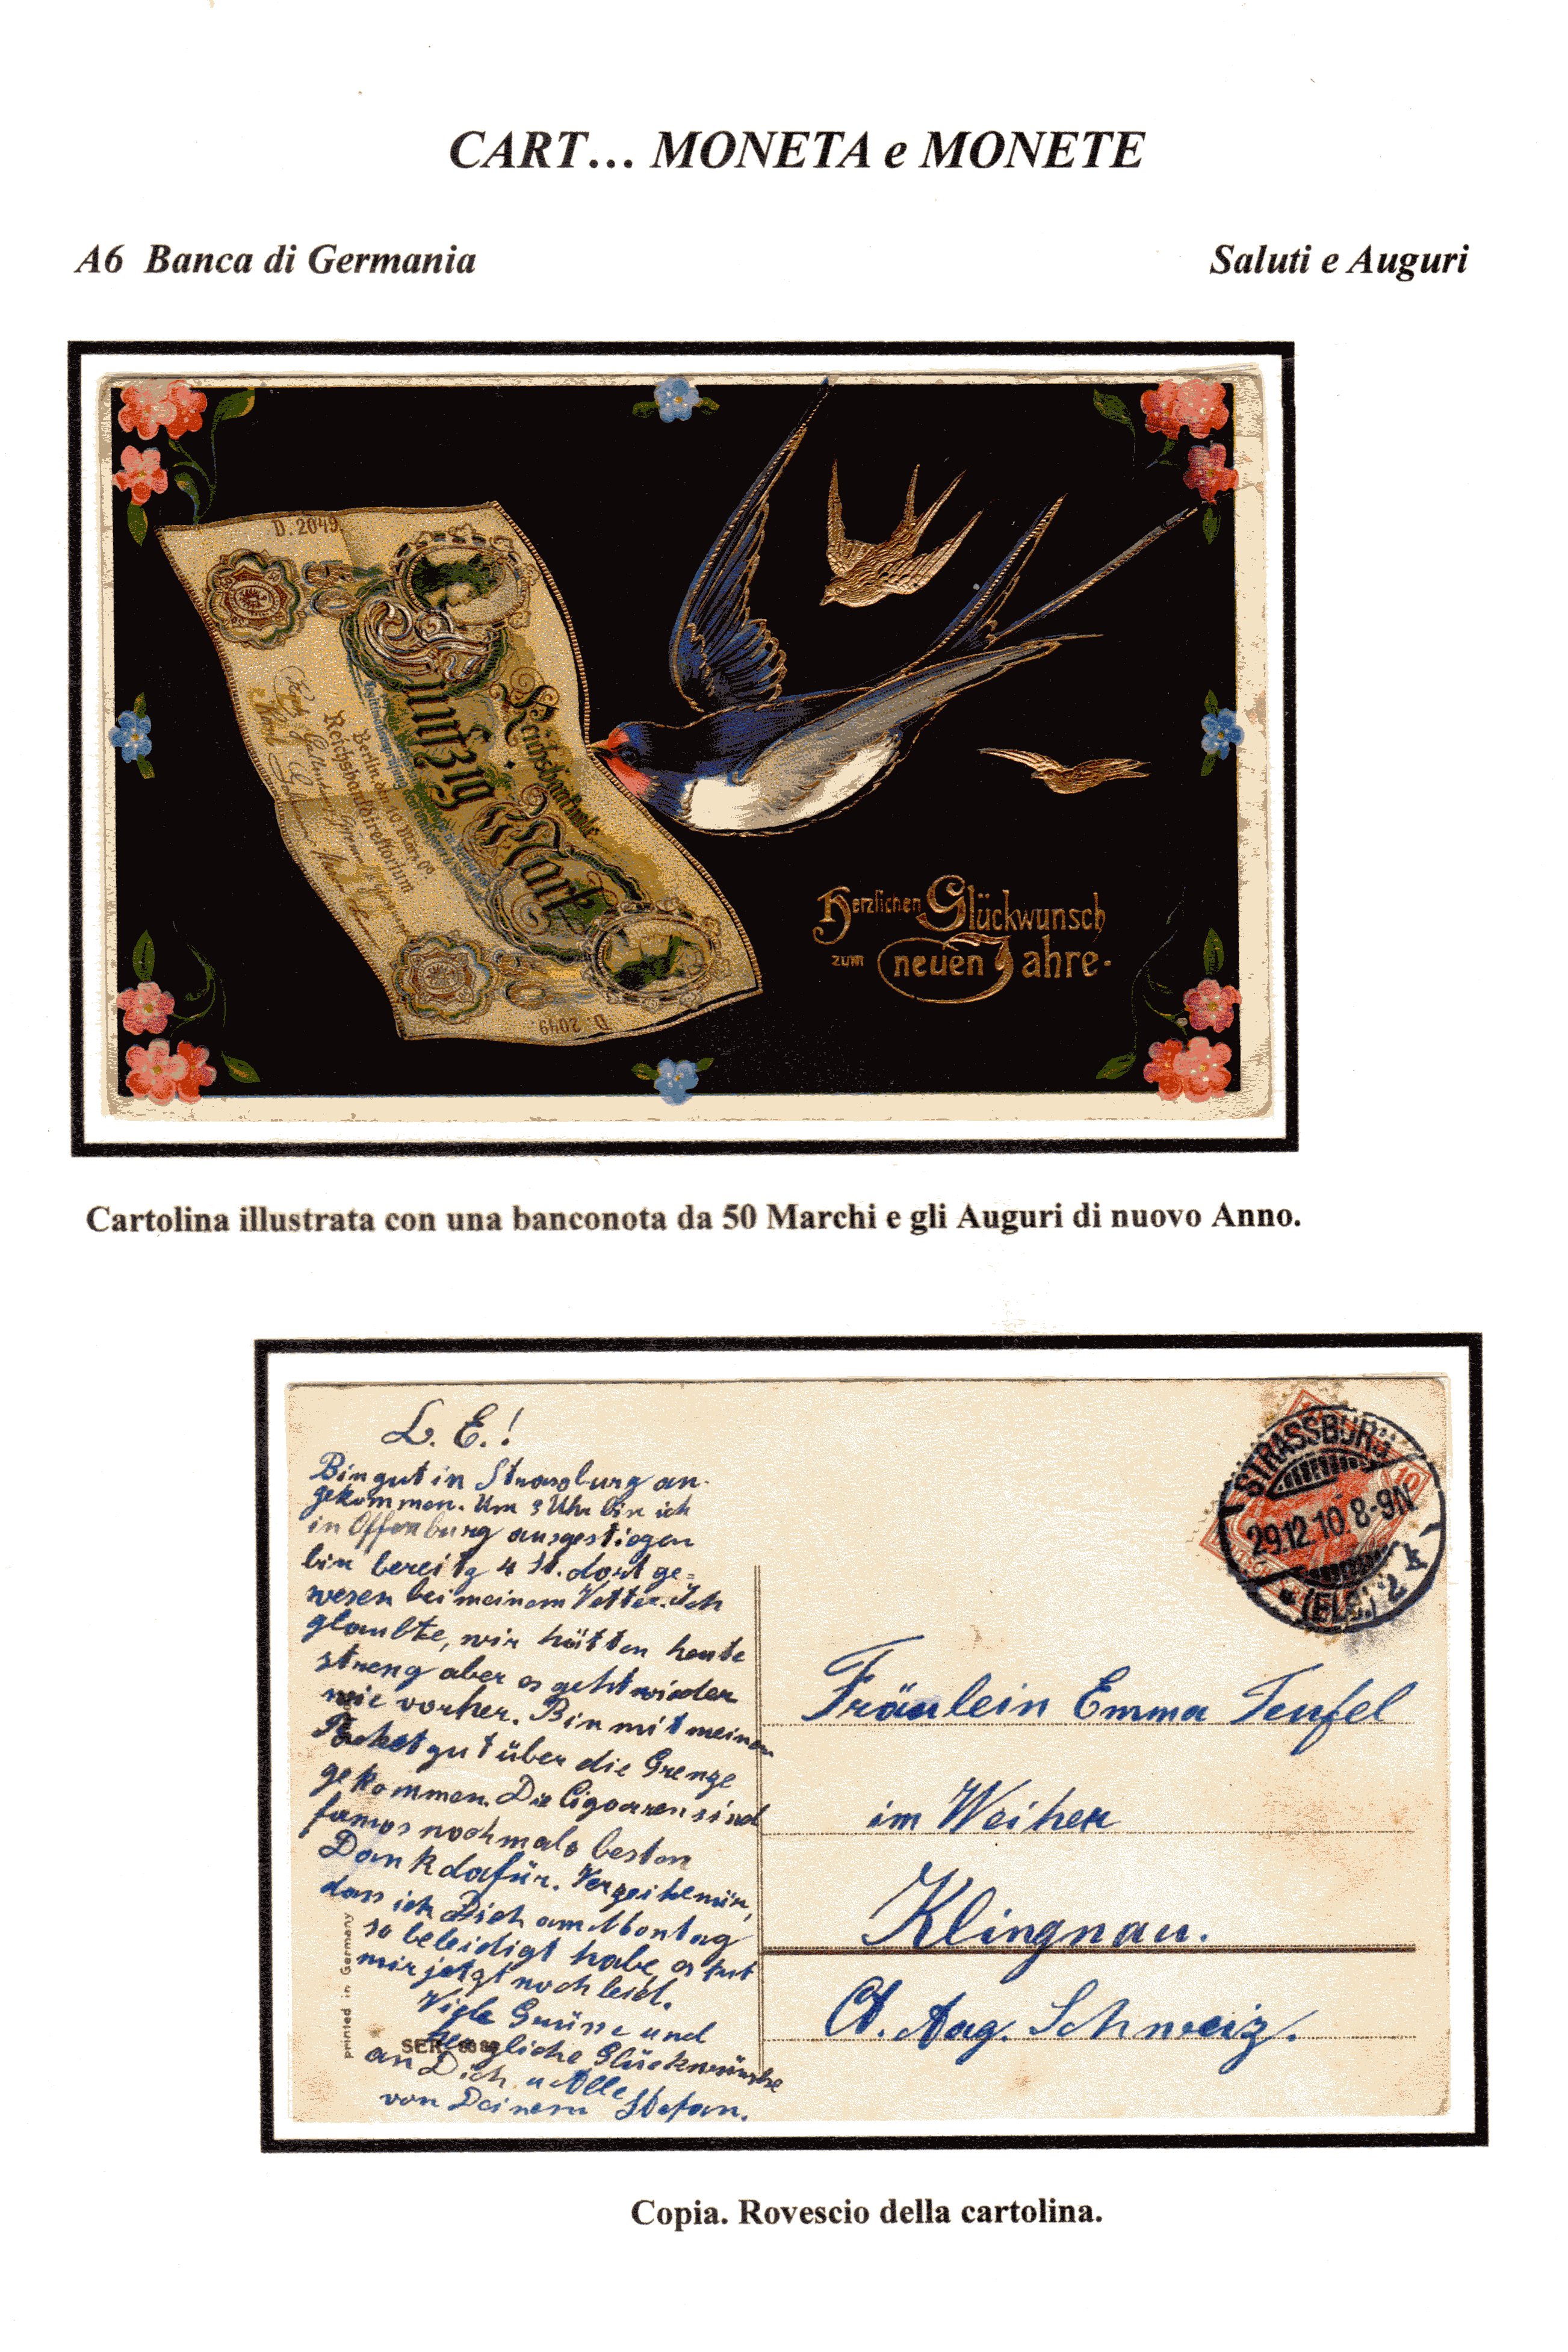 CART... MONETA e MONETE
A6 Banca di Germania
Saluti e Auguri
D. 2049
Reichsbanknote
Fünfzig Mark
Berlin, den 10. März 06.
Reichsbankdirektorium
D. 2049
Herzlichen Glückwunsch
zum neuen Jahre.
Cartolina illustrata con una banconota da 50 Marchi e gli Auguri di nuovo Anno.
L. E.!
Bin gut in Strassburg an-
gekommen. Um 3 Uhr bin ich
in Offenburg ausgestiegen
bin bereits 4 St. dort ge=
wesen bei meinem Vetter. Ich
glaubte, wir hätten heute
streng aber es geht wieder
wie vorher. Bin mit meinem
Packet gut über die Grenze
gekommen. Die Cigarren sind
famos nochmals besten
Dank dafür. Verzeihe mir,
dass ich Dich am Montag
so beleidigt habe es tut
mir jetzt noch leid.
Viele Grüsse und
herzliche Glückwünsche
an Dich u Alle
von Deinem Stefan.
printed in Germany
SER
STRASSBURG
10
29.12.10.8-9N.
(ELS.) 2 k
Fräulein Emma Teufel
im Weiher
Klingnau.
Ct. Aag. Schweiz.
Copia. Rovescio della cartolina.